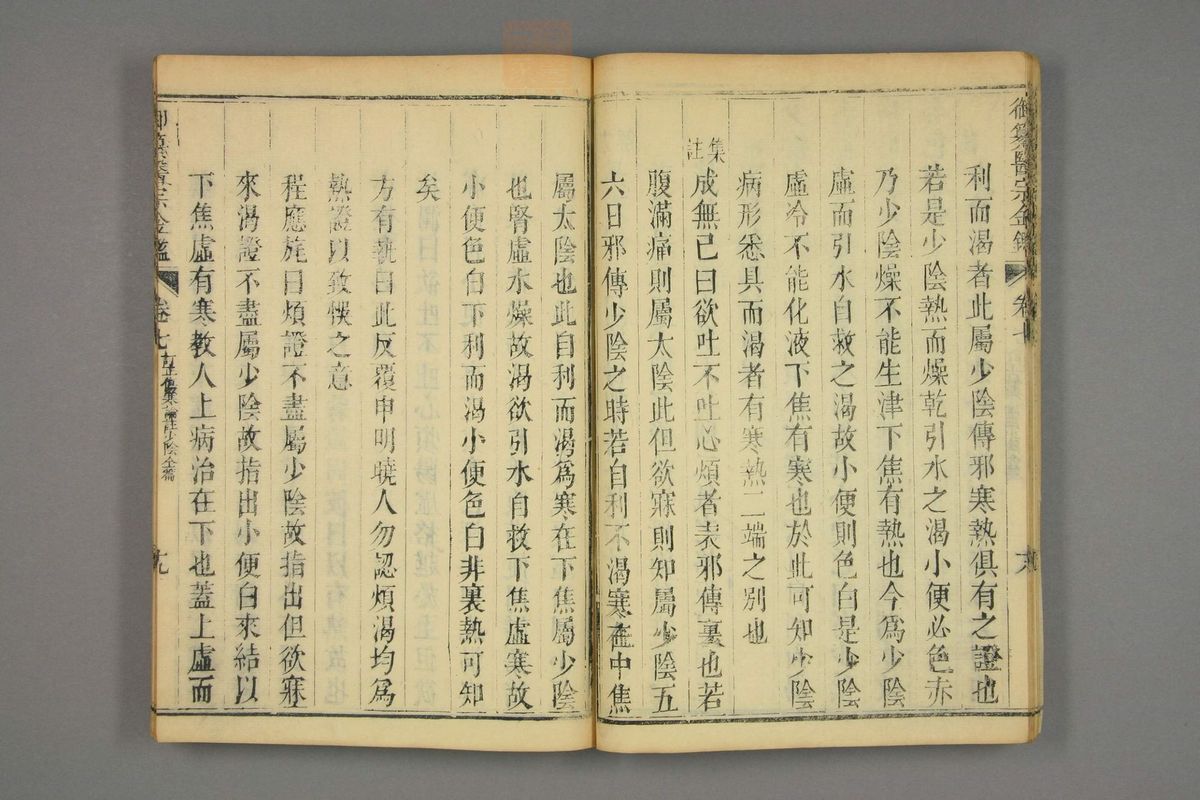 御纂醫宗金鑑 卷七
利而渴者此屬少陰傳邪寒熱俱有之證也
若是少陰熱而燥乾引水之渴小便必色赤
乃少陰燥不能生津下焦有熱也今爲少陰
虛而引水自救之渴故小便則色白是少陰
虛冷不能化液下焦有寒也於此可知少陰
病形悉具而渴者有寒熱二端之別也
集註
成無已曰欲吐不吐心煩者表邪傳裏也若
腹滿痛則屬太陰此但欲寐則知屬少陰五
六日邪傳少陰之時若自利不渴寒在中焦
屬太陰也此自利而渴爲寒在下焦屬少陰
也腎虛水燥故渴欲引水自救下焦虛寒故
小便色白下利而渴小便色白非裏熱可知
矣
方有執曰此反覆申明曉人勿認煩渴均爲
熱證以致悞之意
程應旄曰煩證不盡屬少陰故指出但欲寐
來渴證不盡屬少陰故指出小便白來結以
下焦虛有寒教人上病治在下也蓋上虛而
御纂醫宗金鑑 卷七 少陰全篇 九